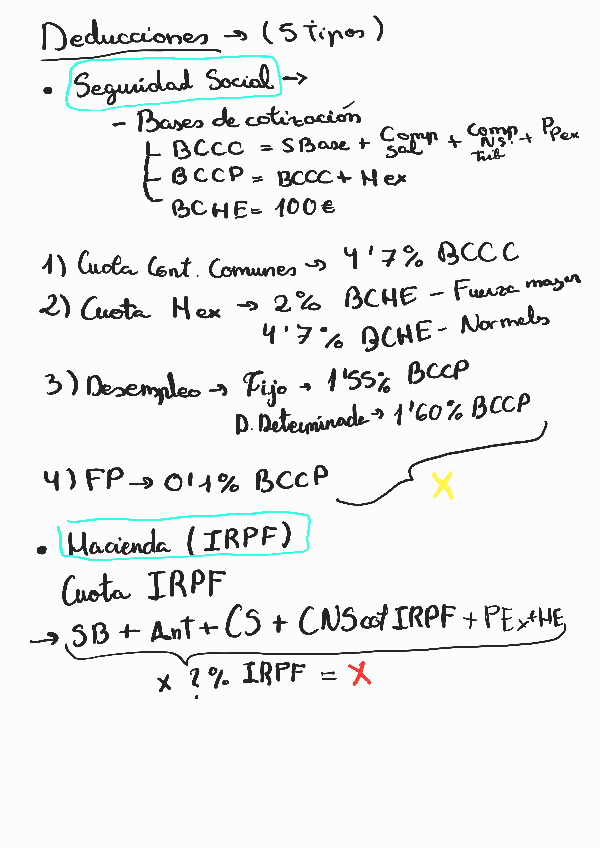 Deducciones → (5 Tipos)
• Seguridad Social →
- Bases de cotización
BCCC = SBase + Comp sal + Comp NS. trib + PPex
BCCP = BCCC + Hex
BCHE = 100€
1) Cuota Cont. Comunes → 4'7% BCCC
2) Cuota Hex → 2% BCHE - Fuerza mayor
4'7% BCHE - Normales
3) Desempleo → Fijo → 1'55% BCCP
D. Determinado → 1'60% BCCP
4) FP → 0'1% BCCP
X
• Hacienda (IRPF)
Cuota IRPF
→ SB + Ant + CS + CNS cot IRPF + PEx + HE
x ?% IRPF = X